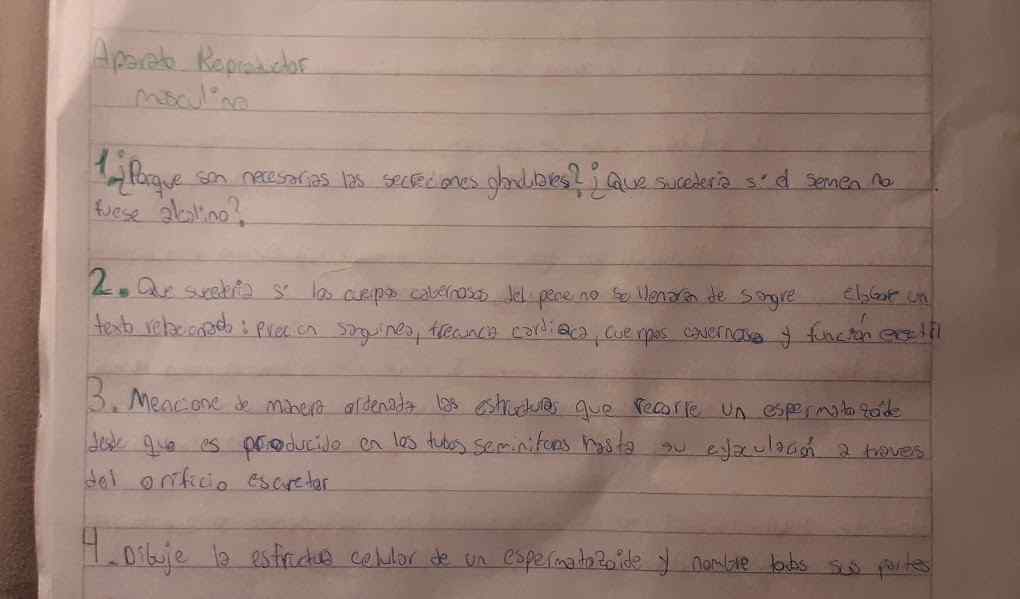 Aparato Reproductor
masculino
1. ¿Porque son necesarias las secreciones glandulares? ¿Que sucederia si el semen no
fuese alcalino?
2. Que sucedería si los cuerpos cavernosos del pene no se llenaran de sangre elabore un
texto relacionado: precion sanguinea, frecuncia cardiaca, cuerpos cavernosos y función erectil
3. Mencione de manera ordenada las estructuras que recorre un espermatozoide
desde que es producido en los tubos seminiferos hasta su eyaculación a traves
del orificio escretor
4. Dibuje la estructua celular de un espermatozoide y nombre todas sus partes